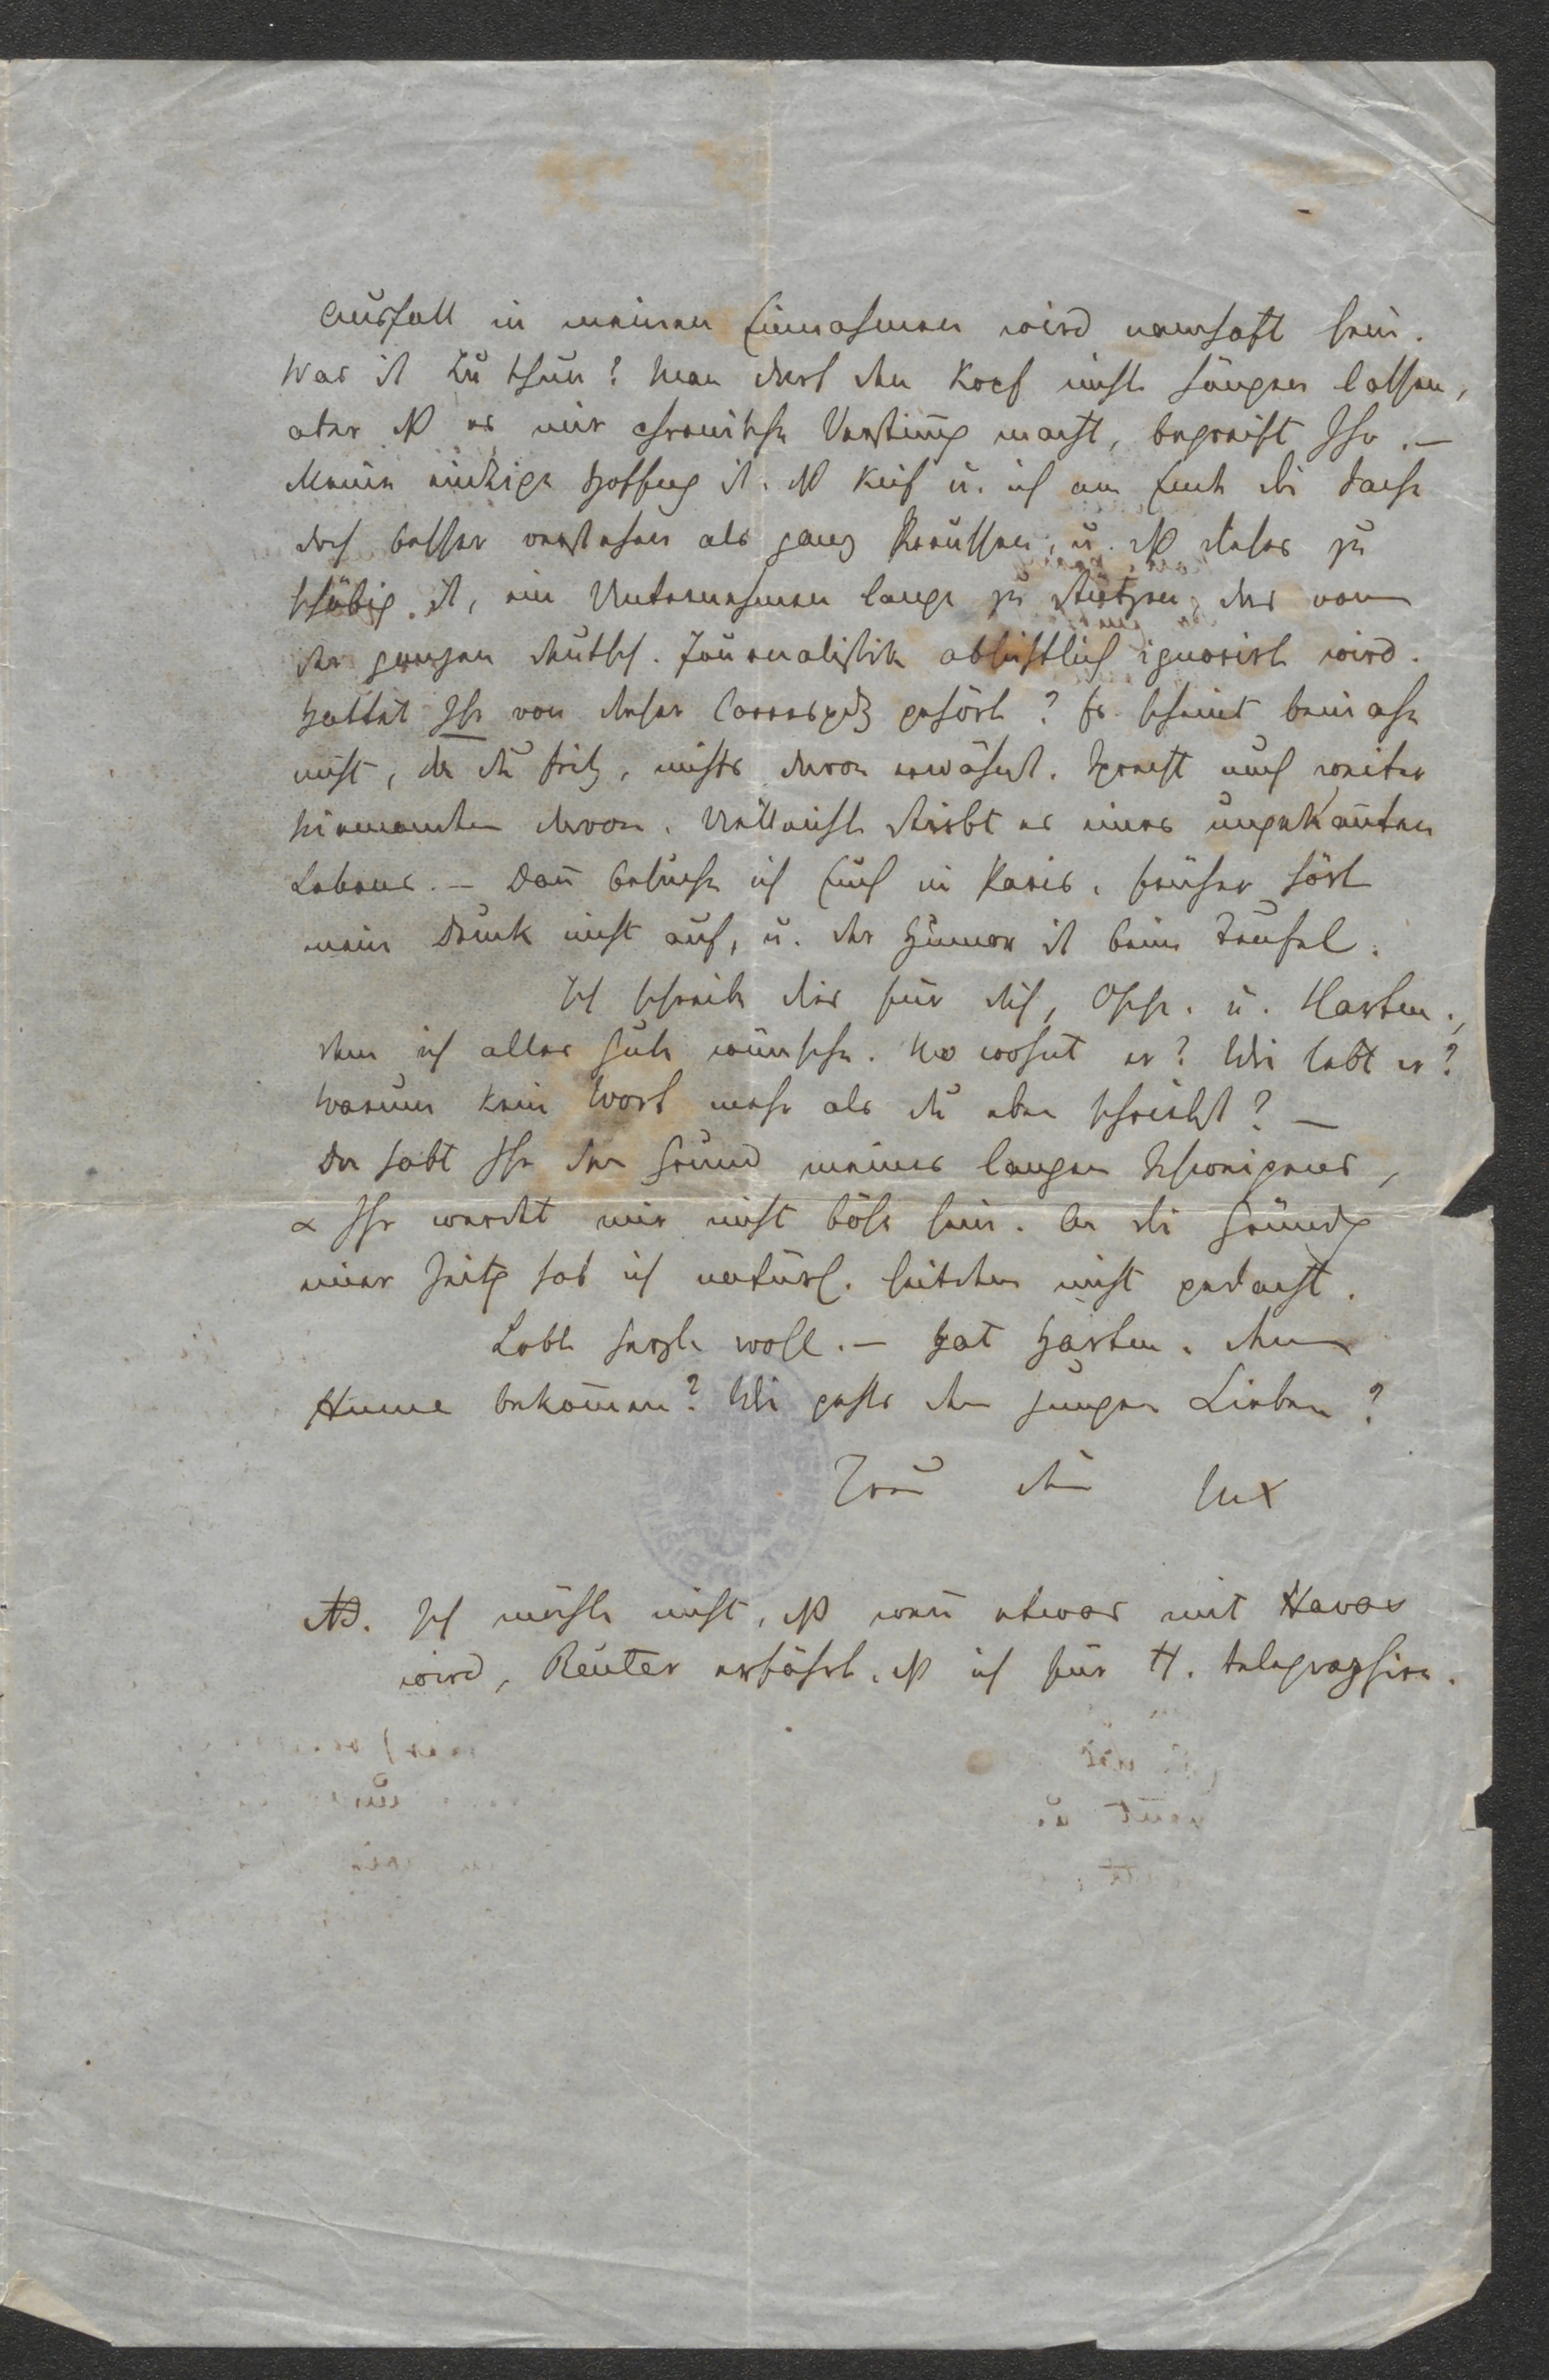 Ausfall in meinen Einnahmen wird namhaft sein.
Was ist zu thun? Man darf den Kopf nicht hängen lassen,
aber daß es mir chronische Verstimmg macht, begreift Ihr. —
Meine einzige Hoffng ist, daß u. ich am Ende die Sache
doch besser verstehen als ganz Preussen, u. daß dieses zu
schäbig ist, ein Unternehmen lange zu stützen, das von
der ganzen deutsch. Journalistik absichtlich ignorirt wird.
Hattet Ihr von dieser Correspdz gehört? Es scheint beinahe
nicht, da du Fritz, nichts davon erwähnst. Sprecht auch weiter
niemandem davon. Vielleicht stirbt es eines ungekannten
Todes. — Dann besuche ich Euch in Paris. Früher hört
mein Druck nicht auf, u. der Humor ist beim Teufel.
Ich schreibe dies für dich, Opp. u. Hartm.,
dem ich alles Gute wünsche. Wo wohnt er? Wie lebt er?
Warum kein Wort mehr als du eben schreibst? —
Da habt Ihr den Grund meines langen Schweigens,
& Ihr werdet mir nicht böse sein. An die Gründg
einer Zeitg hab ich natürl. seitdem nicht gedacht.
Lebt herzl. wohl. — Hat Hartm. den
Hume bekommen? Wie gehts den jungen Lieben?
Treu dein Max
NB. Ich möchte nicht, daß wenn etwas mit Havas
wird, Reuter erfährt, daß ich für H. telegraphire.